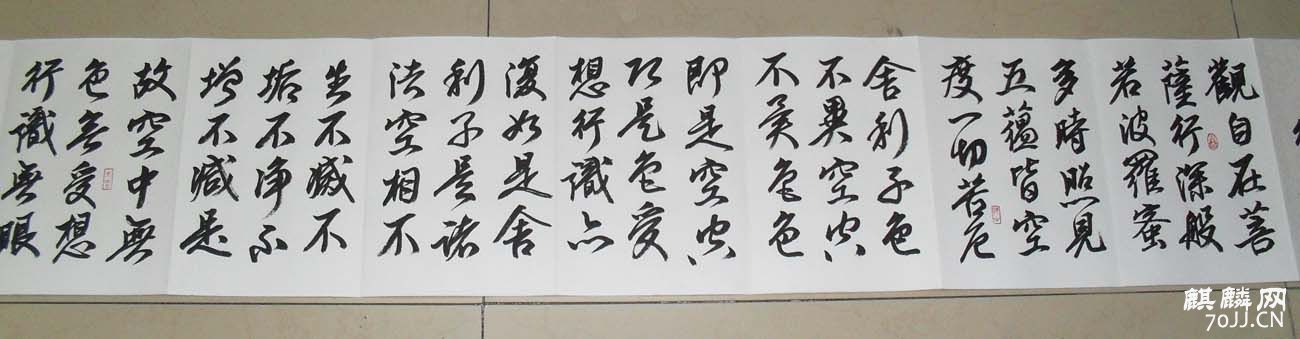 觀自在菩
薩行深般
若波羅蜜
多時照見
五蘊皆空
度一切苦厄
舍利子色
不異空空
不異色色
即是空空
即是色受
想行識亦
復如是舍
利子是諸
法空相不
生不滅不
垢不淨不
增不減是
故空中無
色無受想
行識無眼
麒麟网
70JJ.CN